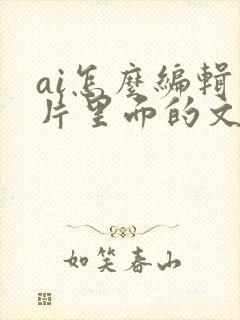 ai怎麼編輯
片里面的文
如笑春山